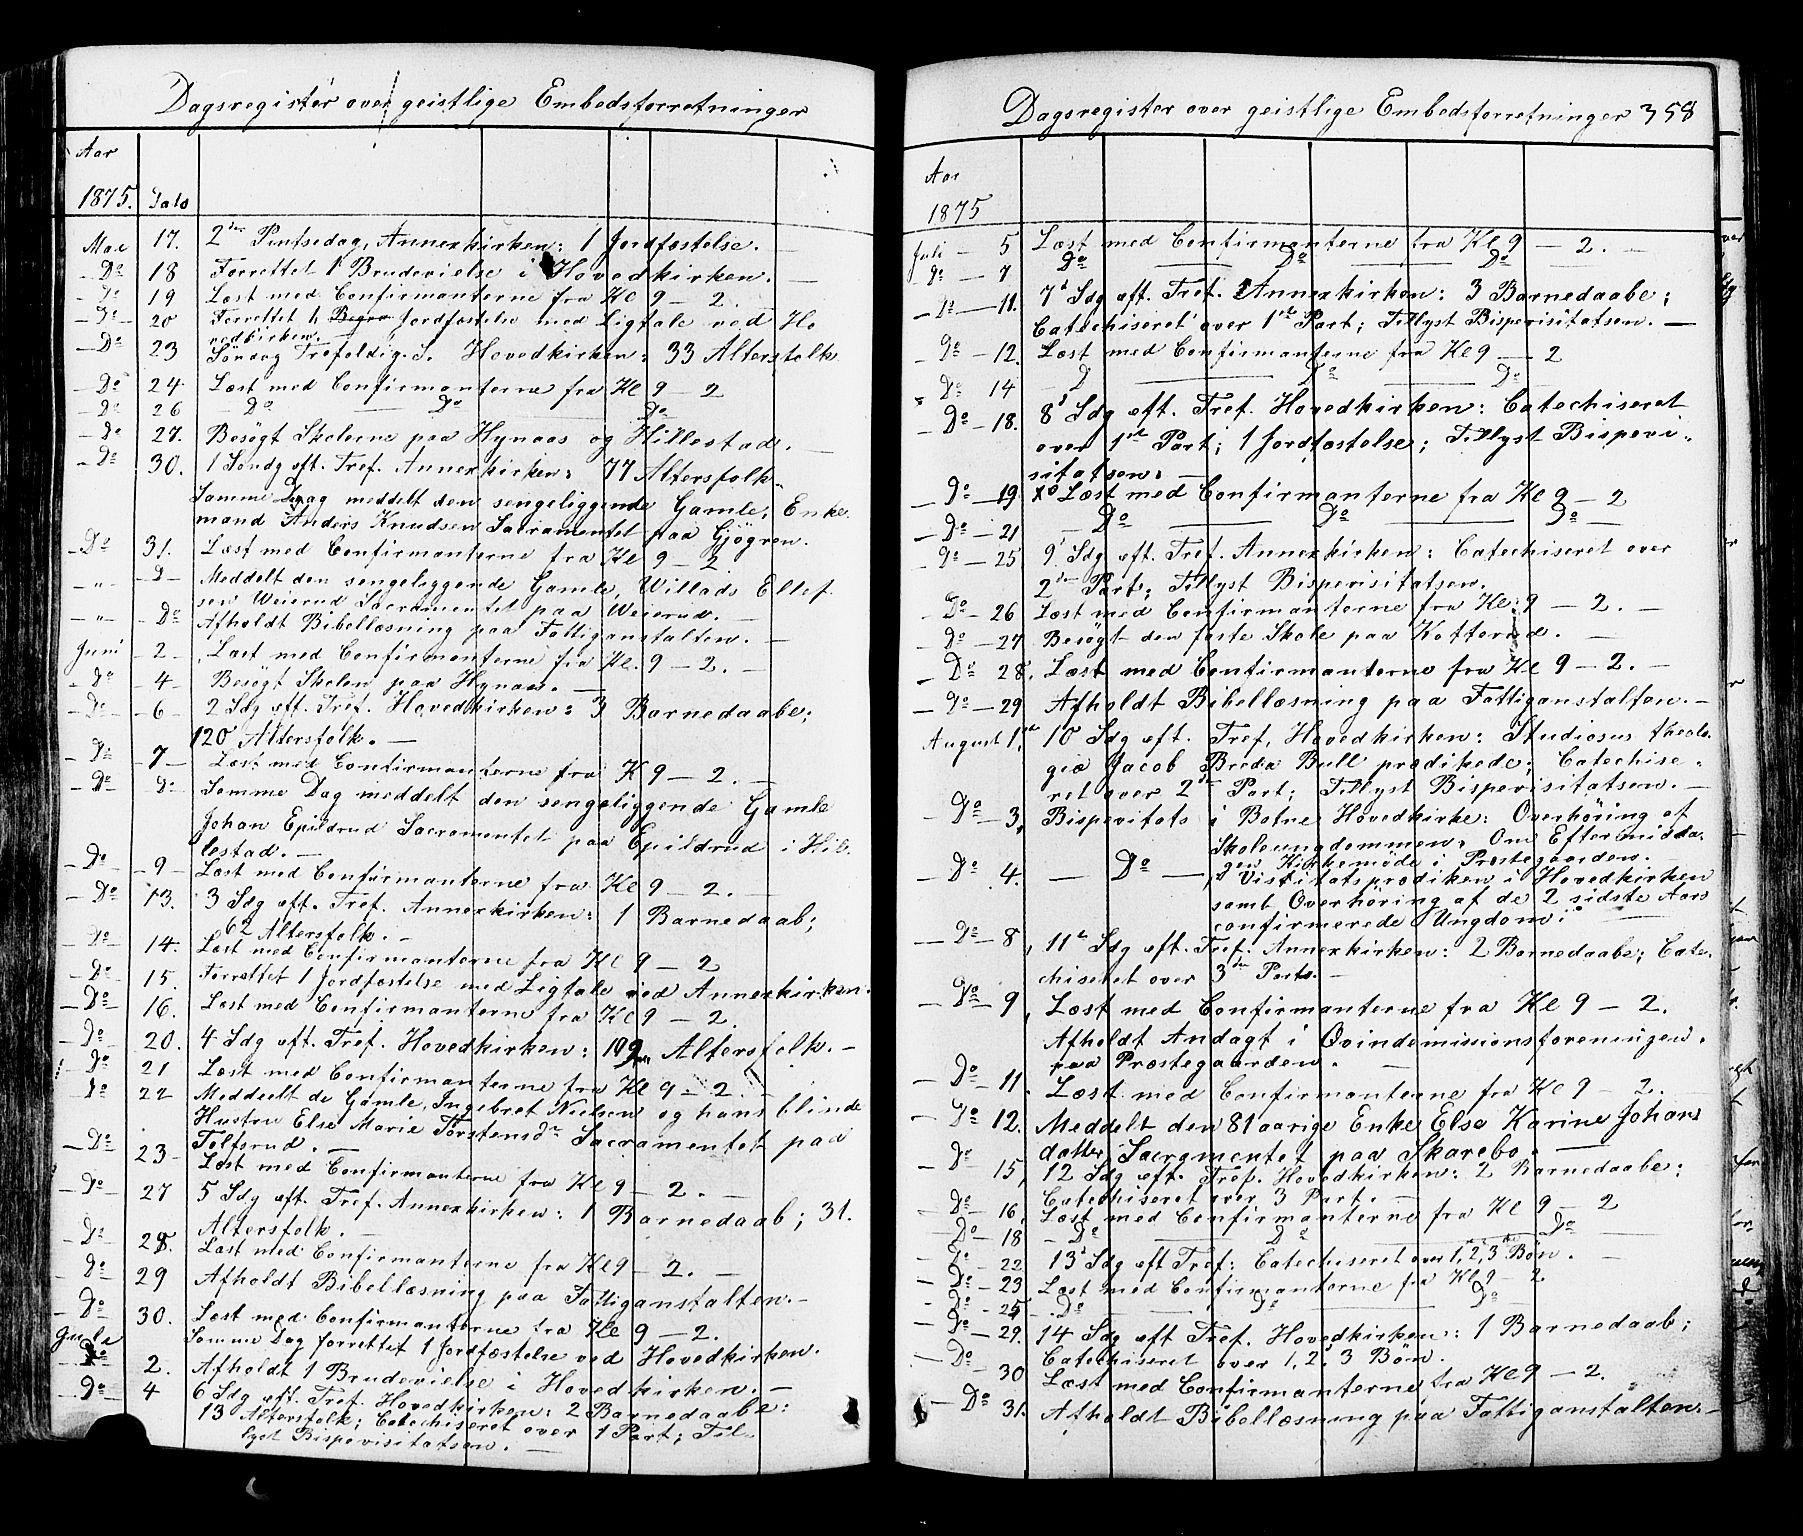 Dagsregister over geistlige Embedsforretninger
Aar
1875. Dato
Mai 17. 2den Pintsedag, Annexkirken: 1 Jordfæstelse.
Do 18 Forrettet 1 Brudevielse i Hovedkirken. —
Do 19 Læst med Confirmanterne fra Kl 9 — 2.
Do 20 Forrettet 1 Begra Jordfæstelse med Ligtale ved Ho
vedkirken. —
Do 23 Søndag Trefoldig. S. Hovedkirken: 33 Altersfolk
Do 24 Læst med Confirmanterne fra Kl 9 — 2
Do 26 Do — Do — Do
Do 27. Besøgt Skolerne paa Hynaas og Hillestad. —
Do 30. 1 Søndg eft. Tref. Annexkirken: 77 Altersfolk.
Samme Dag meddelt den sengeliggende Gamle, Enke
mand Anders Knudsen Sacramentet paa Gjøgren.
Do 31. Læst med Confirmanterne fra Kl 9 — 2
— " — D — Meddelt den sengeliggende Gamle, Willads Ellef
sen Weierud Sacramentet paa Weierud. —
— " — Do Afholdt Bibellæsning paa Fattiganstalten. —
Juni — 2 — Læst med Confirmanterne fra Kl. 9 — 2. —
Do — 4 — Besøgt Skolen paa Hynaas. —
Do — 6 — 2 Sdg eft. Tref. Hovedkirken: 3 Barnedaabe;
120 Altersfolk. —
Do — 7 — Læst med Confirmanterne fra K 9 — 2. —
Do Do Samme Dag meddelt den sengeliggende Gamle
Johan Epildrud Sacramentet paa Epildrud i Hil
lestad. —
Do — 9 — Læst med Confirmanterne fra Kl 9 — 2. —
Do 13. 3 Sdg eft. Tref. Annexkirken: 1 Barnedaab;
62 Altersfolk. —
Do 14. Læst med Confirmanterne fra Kl 9 — 2
Do 15. Forrettet 1 Jordfæstelse med Ligtale ved Annexkirken.
Do 16. Læst med Confirmanterne fra Kl 9 — 2.
Do 20. 4 Sdg eft. Tref. Hovedkirken: Altersfolk. —
Do 21 Læst med Confirmanterne fra Kl 9 — 2. —
Do 22 Meddeelt de Gamle, Ingebret Nielsen og hans blinde
Hustru Else Marie Torstensdr Sacramentet paa
Tolfsrud. —
Do 23 — Læst med Confirmanterne fra Kl 9 — 2. —
Do 27 5 Sdg eft. Tref. Annexkirken: 1 Barnedaab; 31.
Altersfolk. —
Do 28. Læst med Confirmanterne fra Kl 9 — 2. —
Do 29 Afholdt Bibellæsning paa Fattiganstalten. —
Do 30. Læst med Confirmanterne fra Kl 9 — 2.
Samme Dag forrettet 1 Jordfæstelse ved Hovedkirken.
Juli
Do 2. Afholdt 1 Brudevielse i Hovedkirken. —
Do 4 6 Sdg eft. Tref. Hovedkirken: 2 Barnedaabe:
13 Altersfolk; Catechiseret over 1 Part; Til
lyst Bispevisitatsen. —
Dagsregister over geistlige Embedsforretninger 358
Aar
1875
Juli — 5 Læst med Confirmanterne fra Kl 9 — 2. —
Do — 7 Do — Do — Do
Do — 11. 7' Sdg eft. Tref. Annexkirken: 3 Barnedaabe;
Catechiseret over 1ste Part; Tillyst Bispevisitatsen. —
Do — 12. Læst med Confirmanterne fra Kl 9 — 2
Do 14 — D — Do — Do
Do — 18. 8' Sdg eft. Tref. Hovedkirken: Catechiseret
over 1ste Part; 1 Jordfæstelse; Tillyst Bispevi-
sitatsen. —
Do — 19. Læst med Confirmanterne fra Kl 9 — 2
Do — 21 — Do — Do — Do —
Do — 25 9' Sdg eft. Tref. Annexkirken: Catechiseret over
2den Part; Tillyst Bispevisitatsen.
Do — 26 Læst med Confirmanterne fra Kl. 9 — 2. —
Do — 27 Besøgt den faste Skole paa Kotterud. —
Do 28. Læst med Confirmanterne fra Kl 9 — 2. —
Do — 29 Afholdt Bibellæsning paa Fattiganstalten. —
August 1ste 10 Sdg eft. Tref. Hovedkirken: Studiosus theolo-
giæ Jacob Breda Bull prædikede; Catechise-
ret over 2den Part; Tillyst Bispevisitatsen. —
Do — 3. Bispevitats i Botne Hovedkirke: Overhøring af
Skoleungdommen. Om Eftermidda-
gen Kirkemøde i Præstegaarden. —
Do 4. — Do — Visitatsprædiken i Hovedkirken
samt Overhøring af de 2 sidste Aars
confirmerede Ungdom. —
— Do — 8, 11te Sdg eft. Tref. Annexkirken: 2 Barnedaabe; Cate-
chiseret over 3die Part. —
— Do — 9, Læst med Confirmanterne fra Kl 9 — 2.
Afholdt Andagt i Qvindemissionsforeningen
paa Præstegaarden. —
— Do — 11. Læst med Confirmanterne fra Kl 9 — 2.
— Do 12. Meddelt den 81 aarige Enke Else Karine Johans
datter Sacramentet paa Skarebo. —
— Do 15, 12 Sdg eft. Tref. Hovedkirken: 2 Barnedaabe:
Catechiseret over 3 Part. —
— Do 16, Læst med Confirmanterne fra Kl 9 — 2
— Do — 18 — Do — Do — Do
Do — 22 13' Sdg eft Tref: Catechiseret over 1, 2, 3de Bøn. —
— Do — 23 Læst med Confirmanterne fra Kl 9 — 2.
— Do — 25 — Do — Do — Do
— Do — 29. 14 Sdg eft Tref. Hovedkirken: 1 Barnedaab;
Catechiseret over 1, 2, 3 Bøn.
— Do 30 Læst med Confirmanterne fra Kl 9 — 2.
— Do 31. Afholdt Bibellæsning paa Fattiganstalten. —